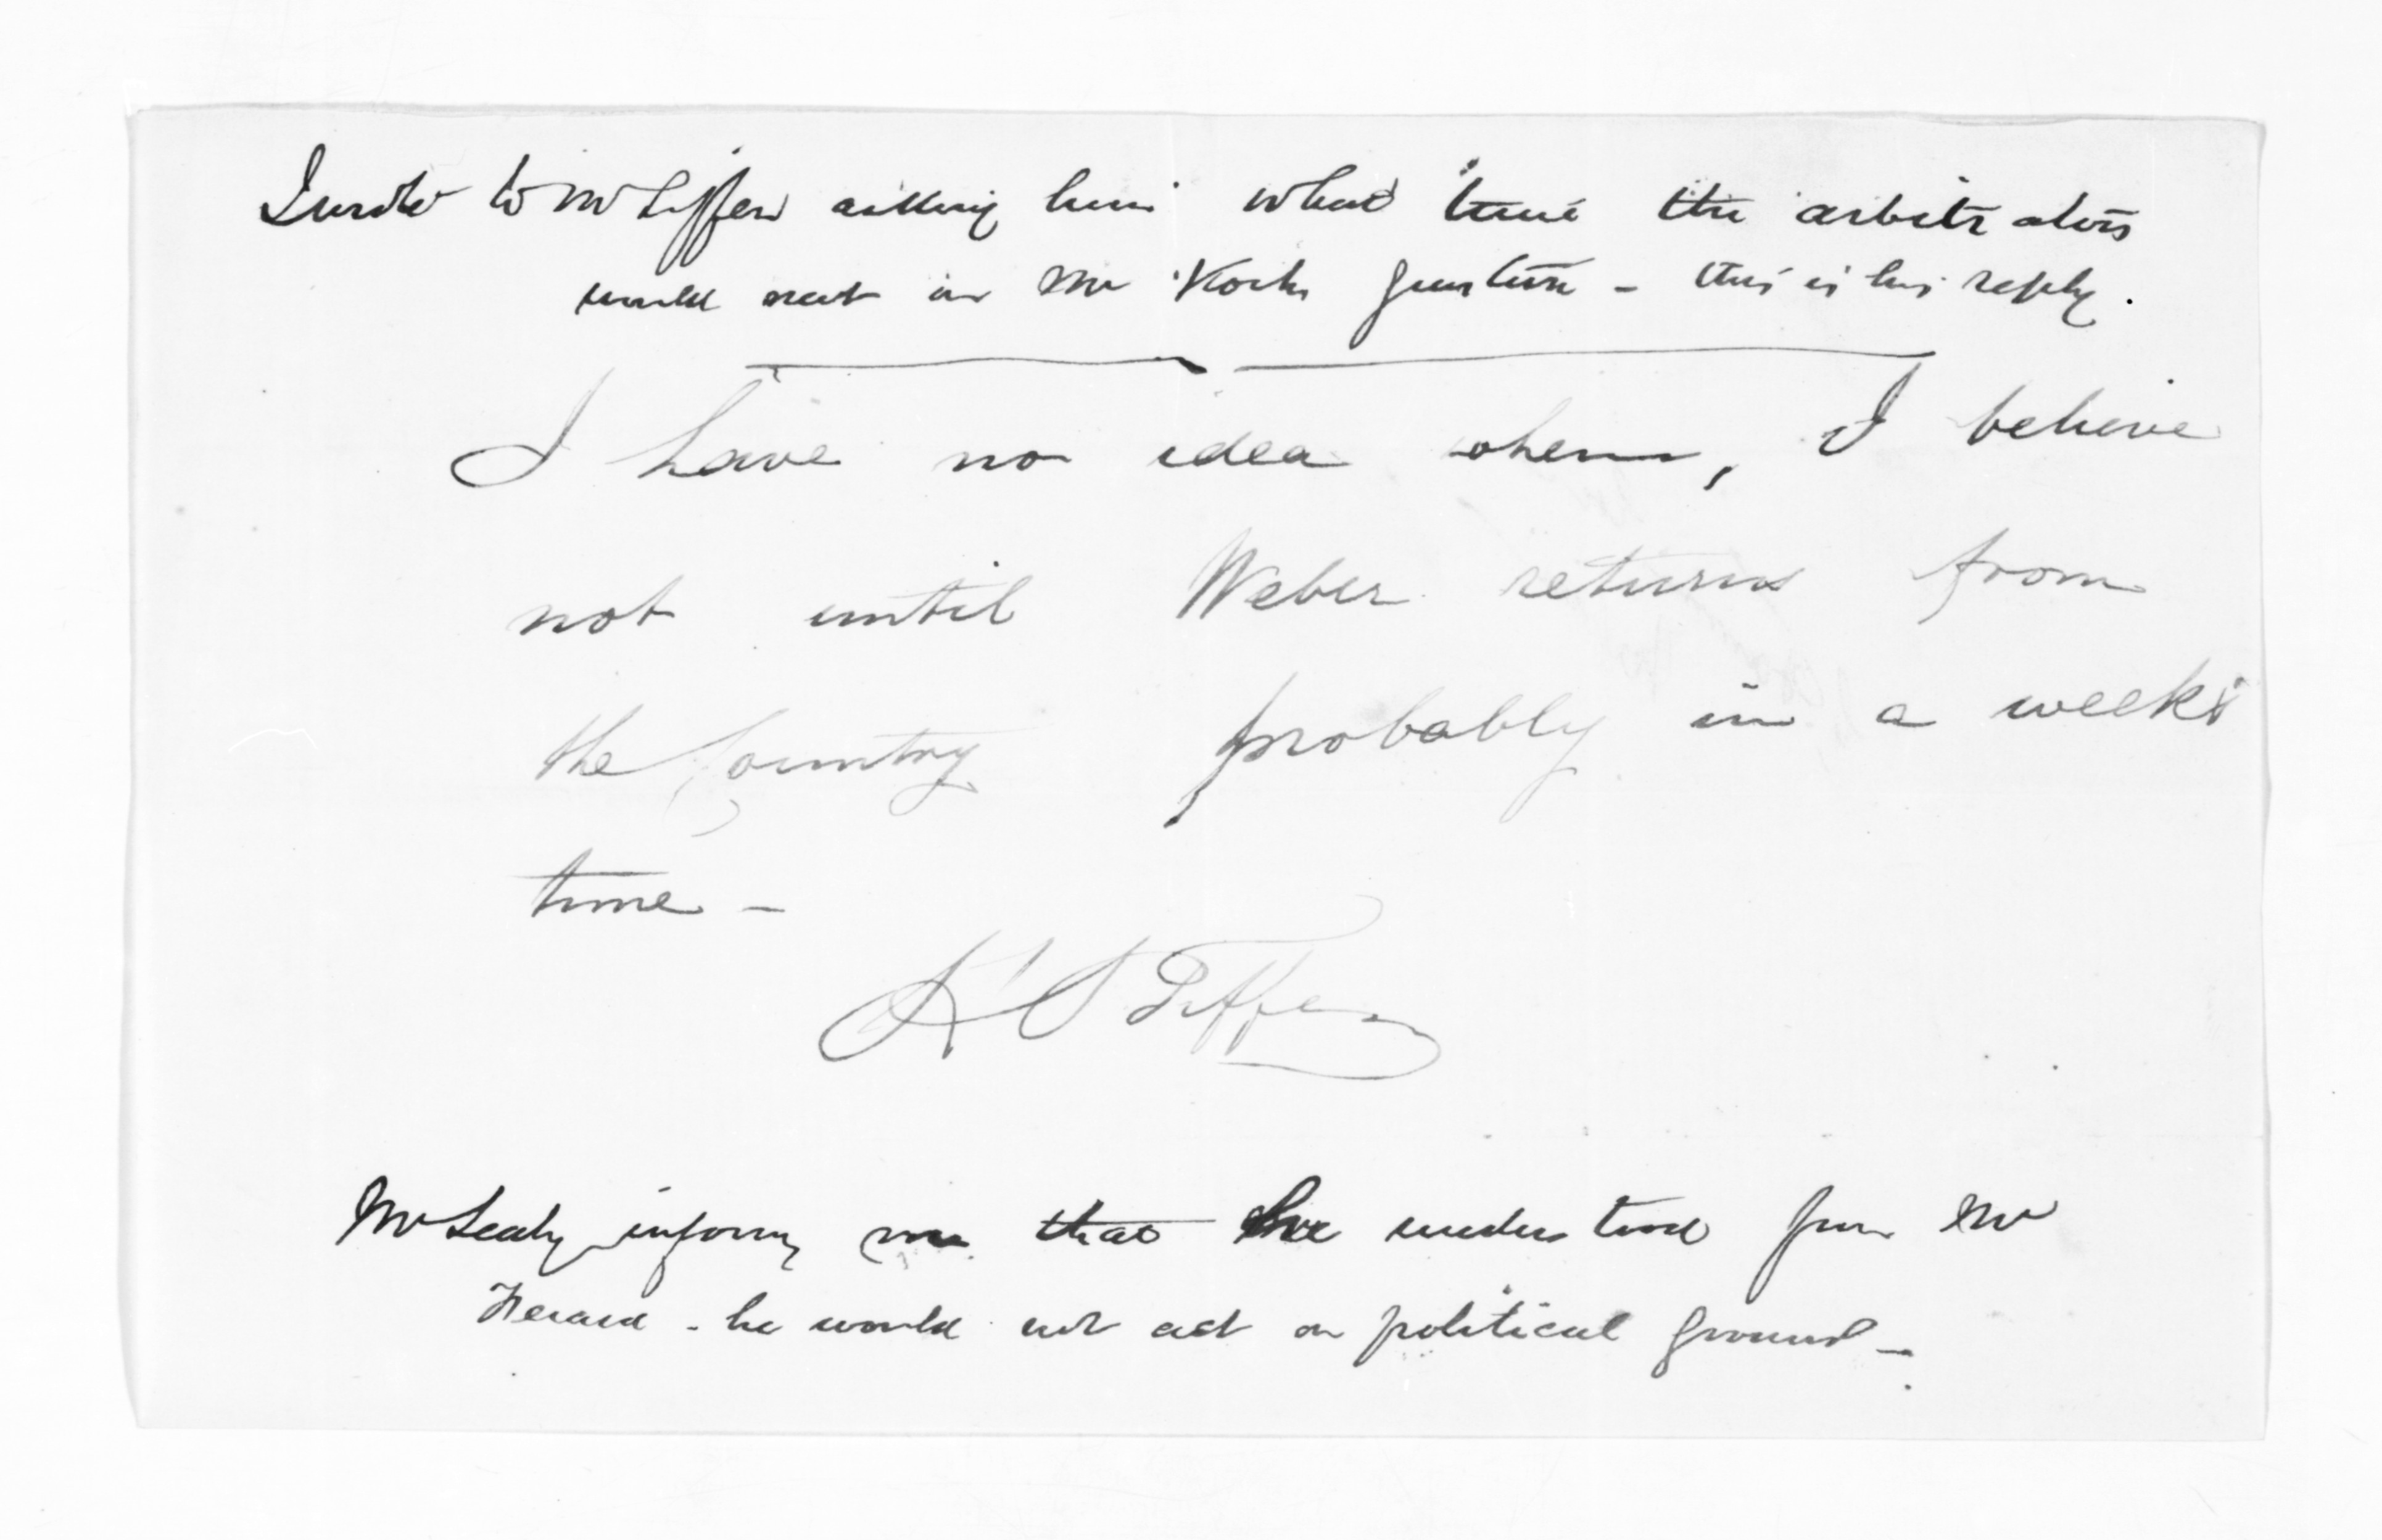 I wrote to Mr Tiffen asking him what time the arbitrators
would meet in Mr Kochs question - this is his reply.
I have no idea when, I believe
not until Weber returns from
the Country probably in a weeks
time -
H S Tiffen
Mr Sealy informs me that he understood from Mr
he would not act on political ground -